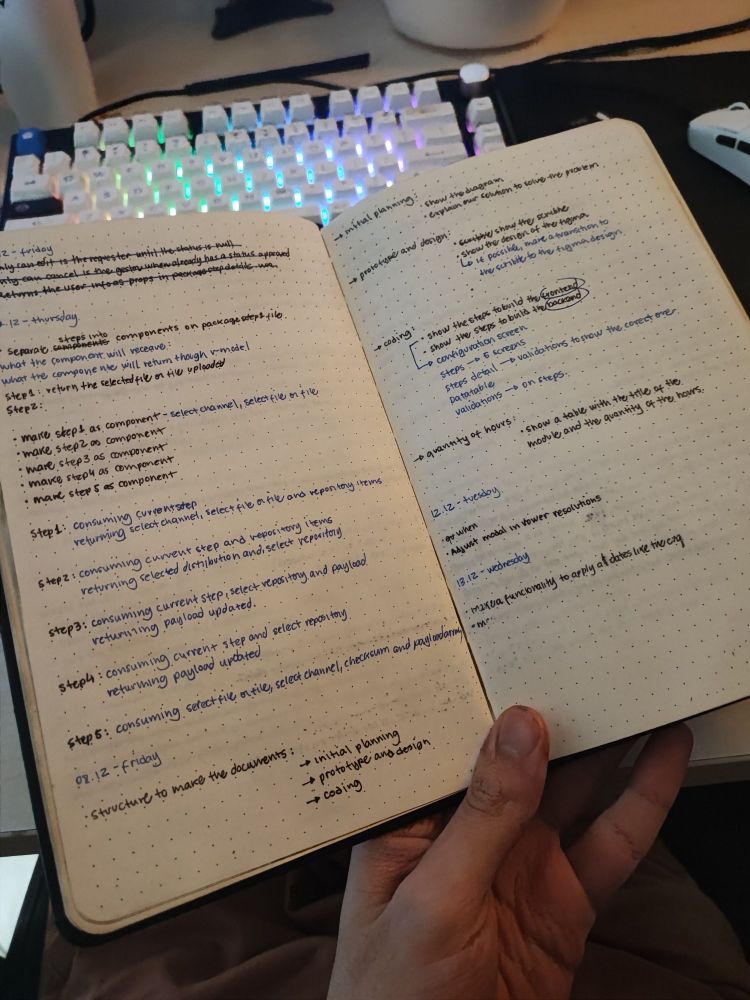 12 - friday
only can edit is the requester until the status is null
only can cancel is the gestor when already has a status approved
returns the user info as props in packagestepdetails.vue.
.12 - thursday
• separate steps into components on packagestep1 file
what the component will receave:
what the component will return though v-model
step1: return the selected file or file uploaded
step2:
• make step1 as component - select channel, select file or file
• make step2 as component
• make step3 as component
• make step4 as component
• make step5 as component
step1: consuming current step
returning select channel, select file or file and repository items
step2: consuming current step and repository items
returning selected distribution and, select repository
step3: consuming current step, select repository and payload
returning payload updated.
step4: consuming current step and select repository
returning payload updated
step5: consuming select file or file, select channel, checksum and payload
08.12 - friday
• structure to make the documents: → initial planning
→ prototype and design
→ coding
→ initial planning: • show the diagram
• explain our solution to solve the problem
→ prototype and design: • scribble show the scrible
• show the design of the figma
↳ if possible, make a transition to
the scrible to the figma design.
→ coding: • show the steps to build the frontend
• show the steps to build the backend
→ configuration screen
steps → 5 screens
steps detail → validations to show the correct
Datatable
validations → on steps.
→ quantity of hours: • show a table with the title of the
module and the quantity of the hours.
12.12 - tuesday
• when
• Adjust modal in lower resolutions
13.12 - wednesday
• make a funcionality to apply all dates like the
• m